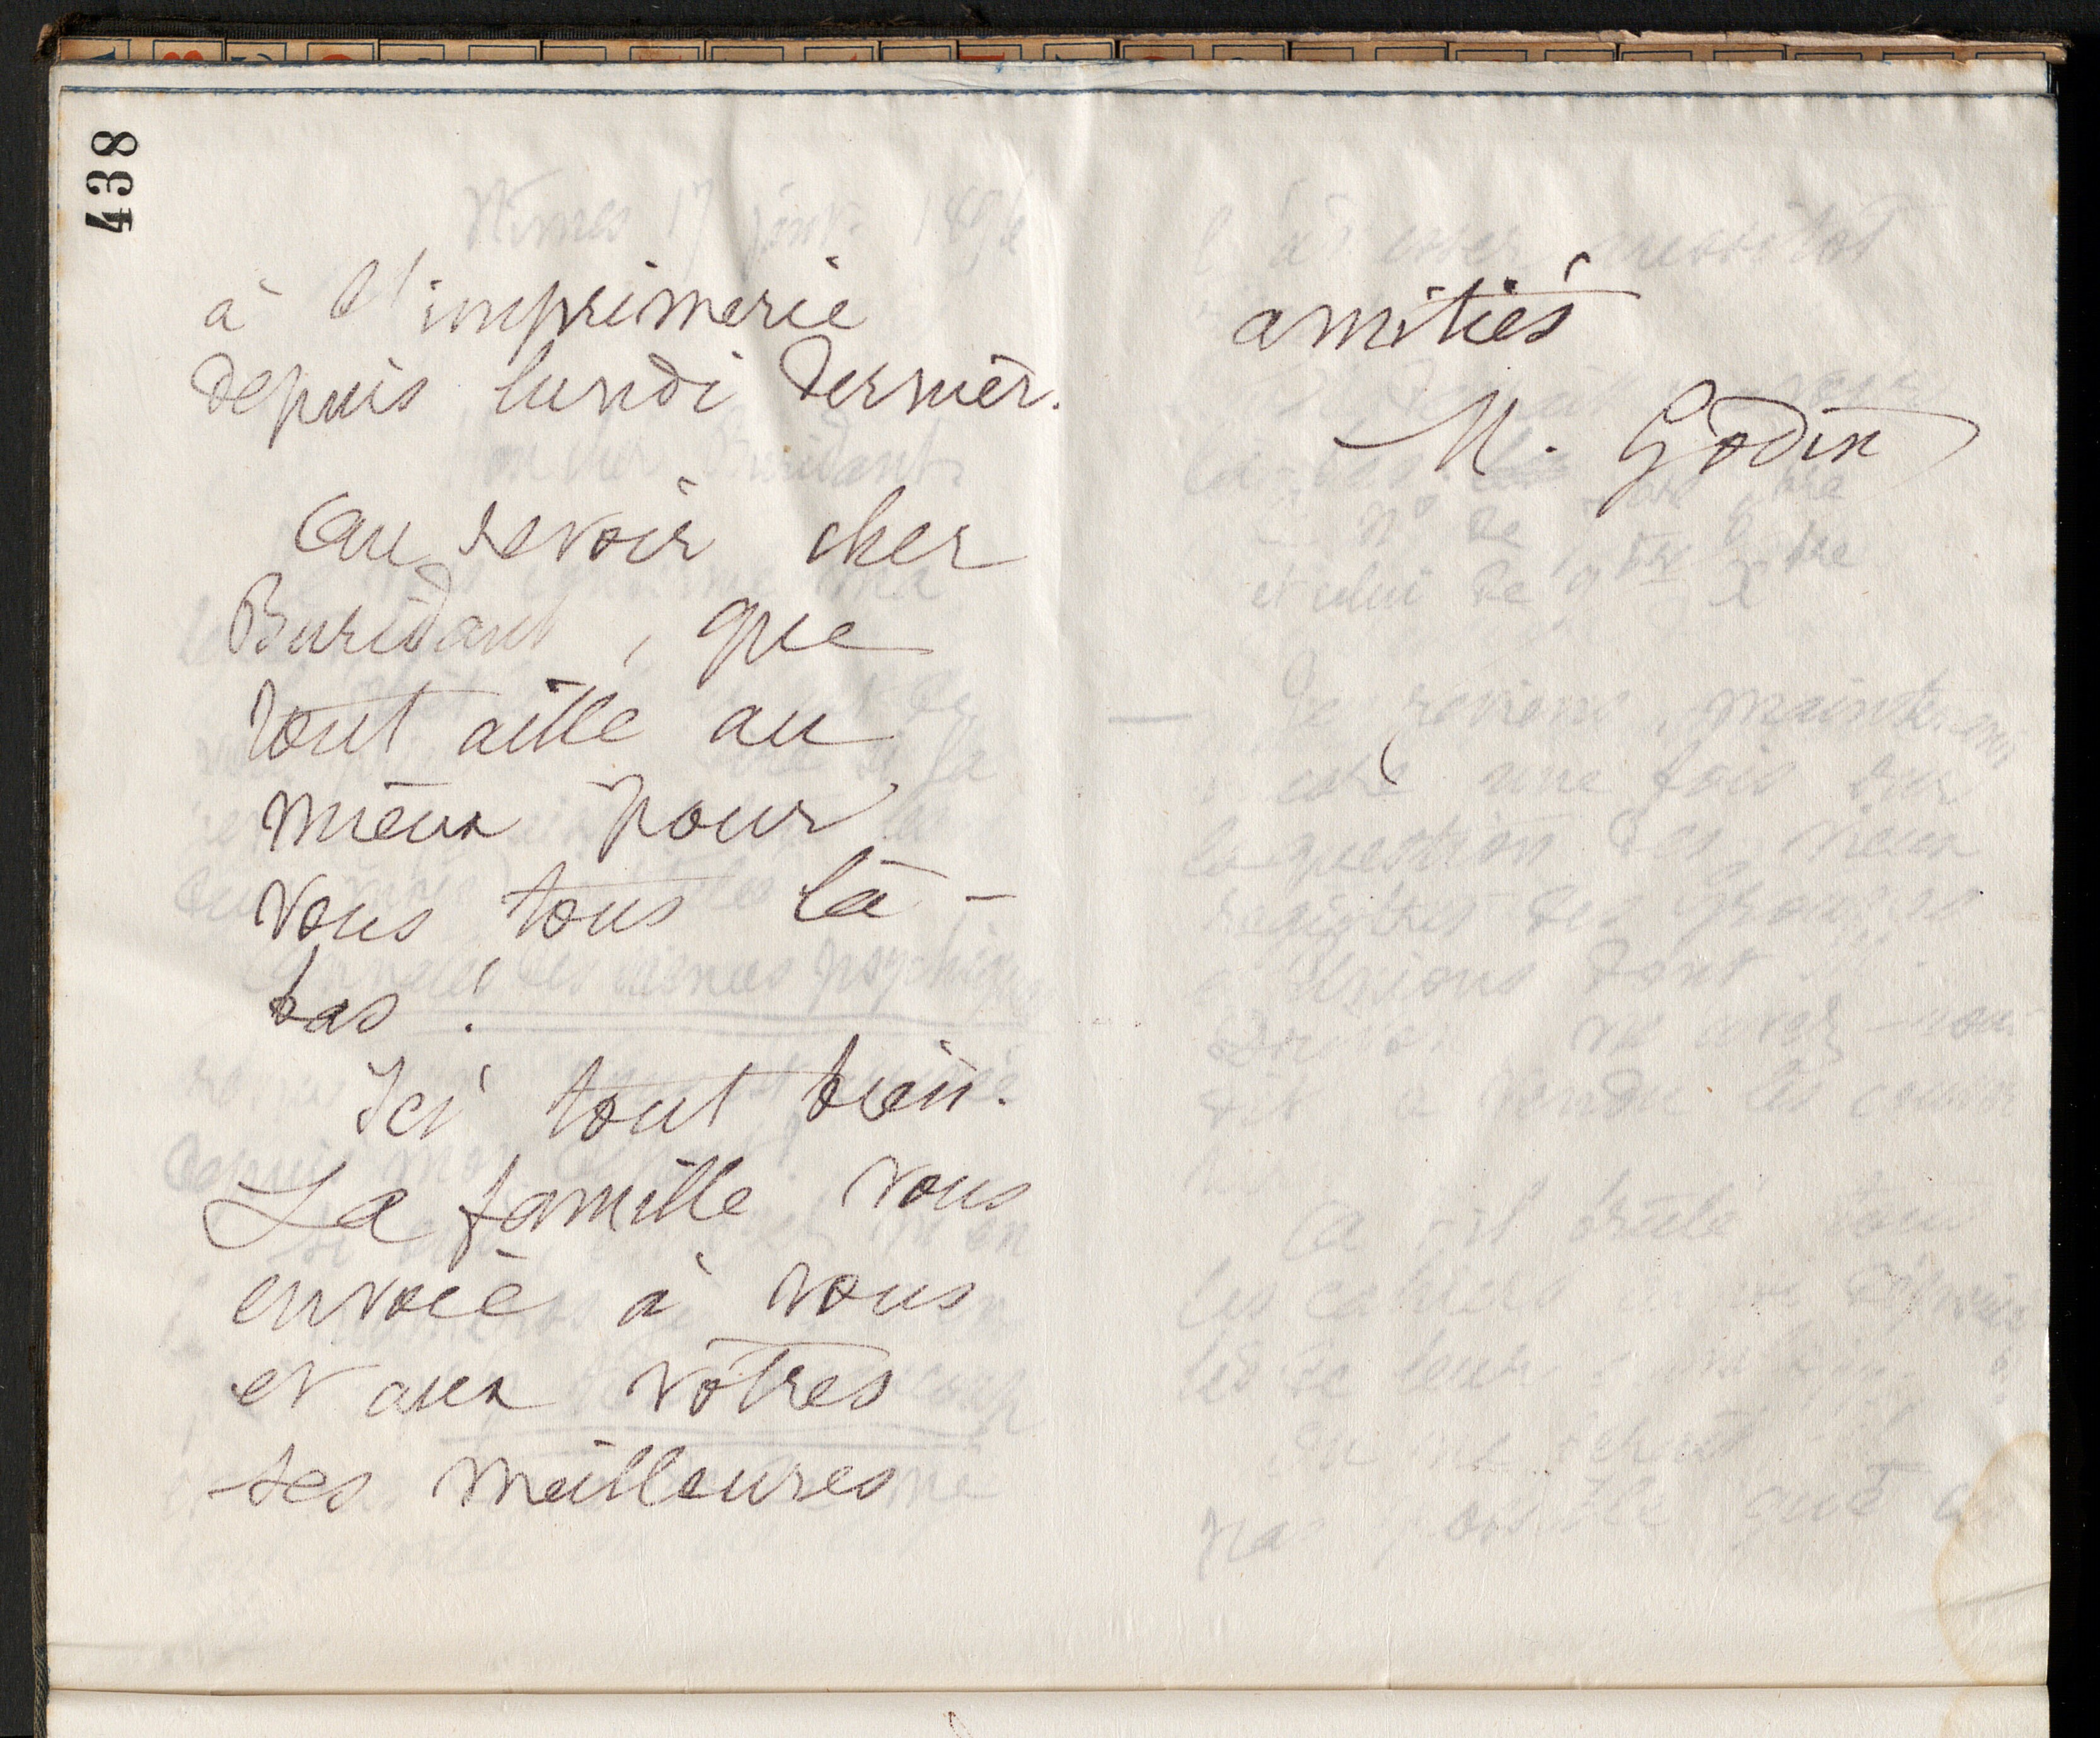 438
à l'imprimerie
depuis lundi dernier.
Au revoir cher
Buridant, que
tout aille au
mieux pour
vous tous là-
bas !
Ici tout bien.
La famille vous
envoie à vous
et aux vôtres
ses meilleures
amitiés
M. Godin